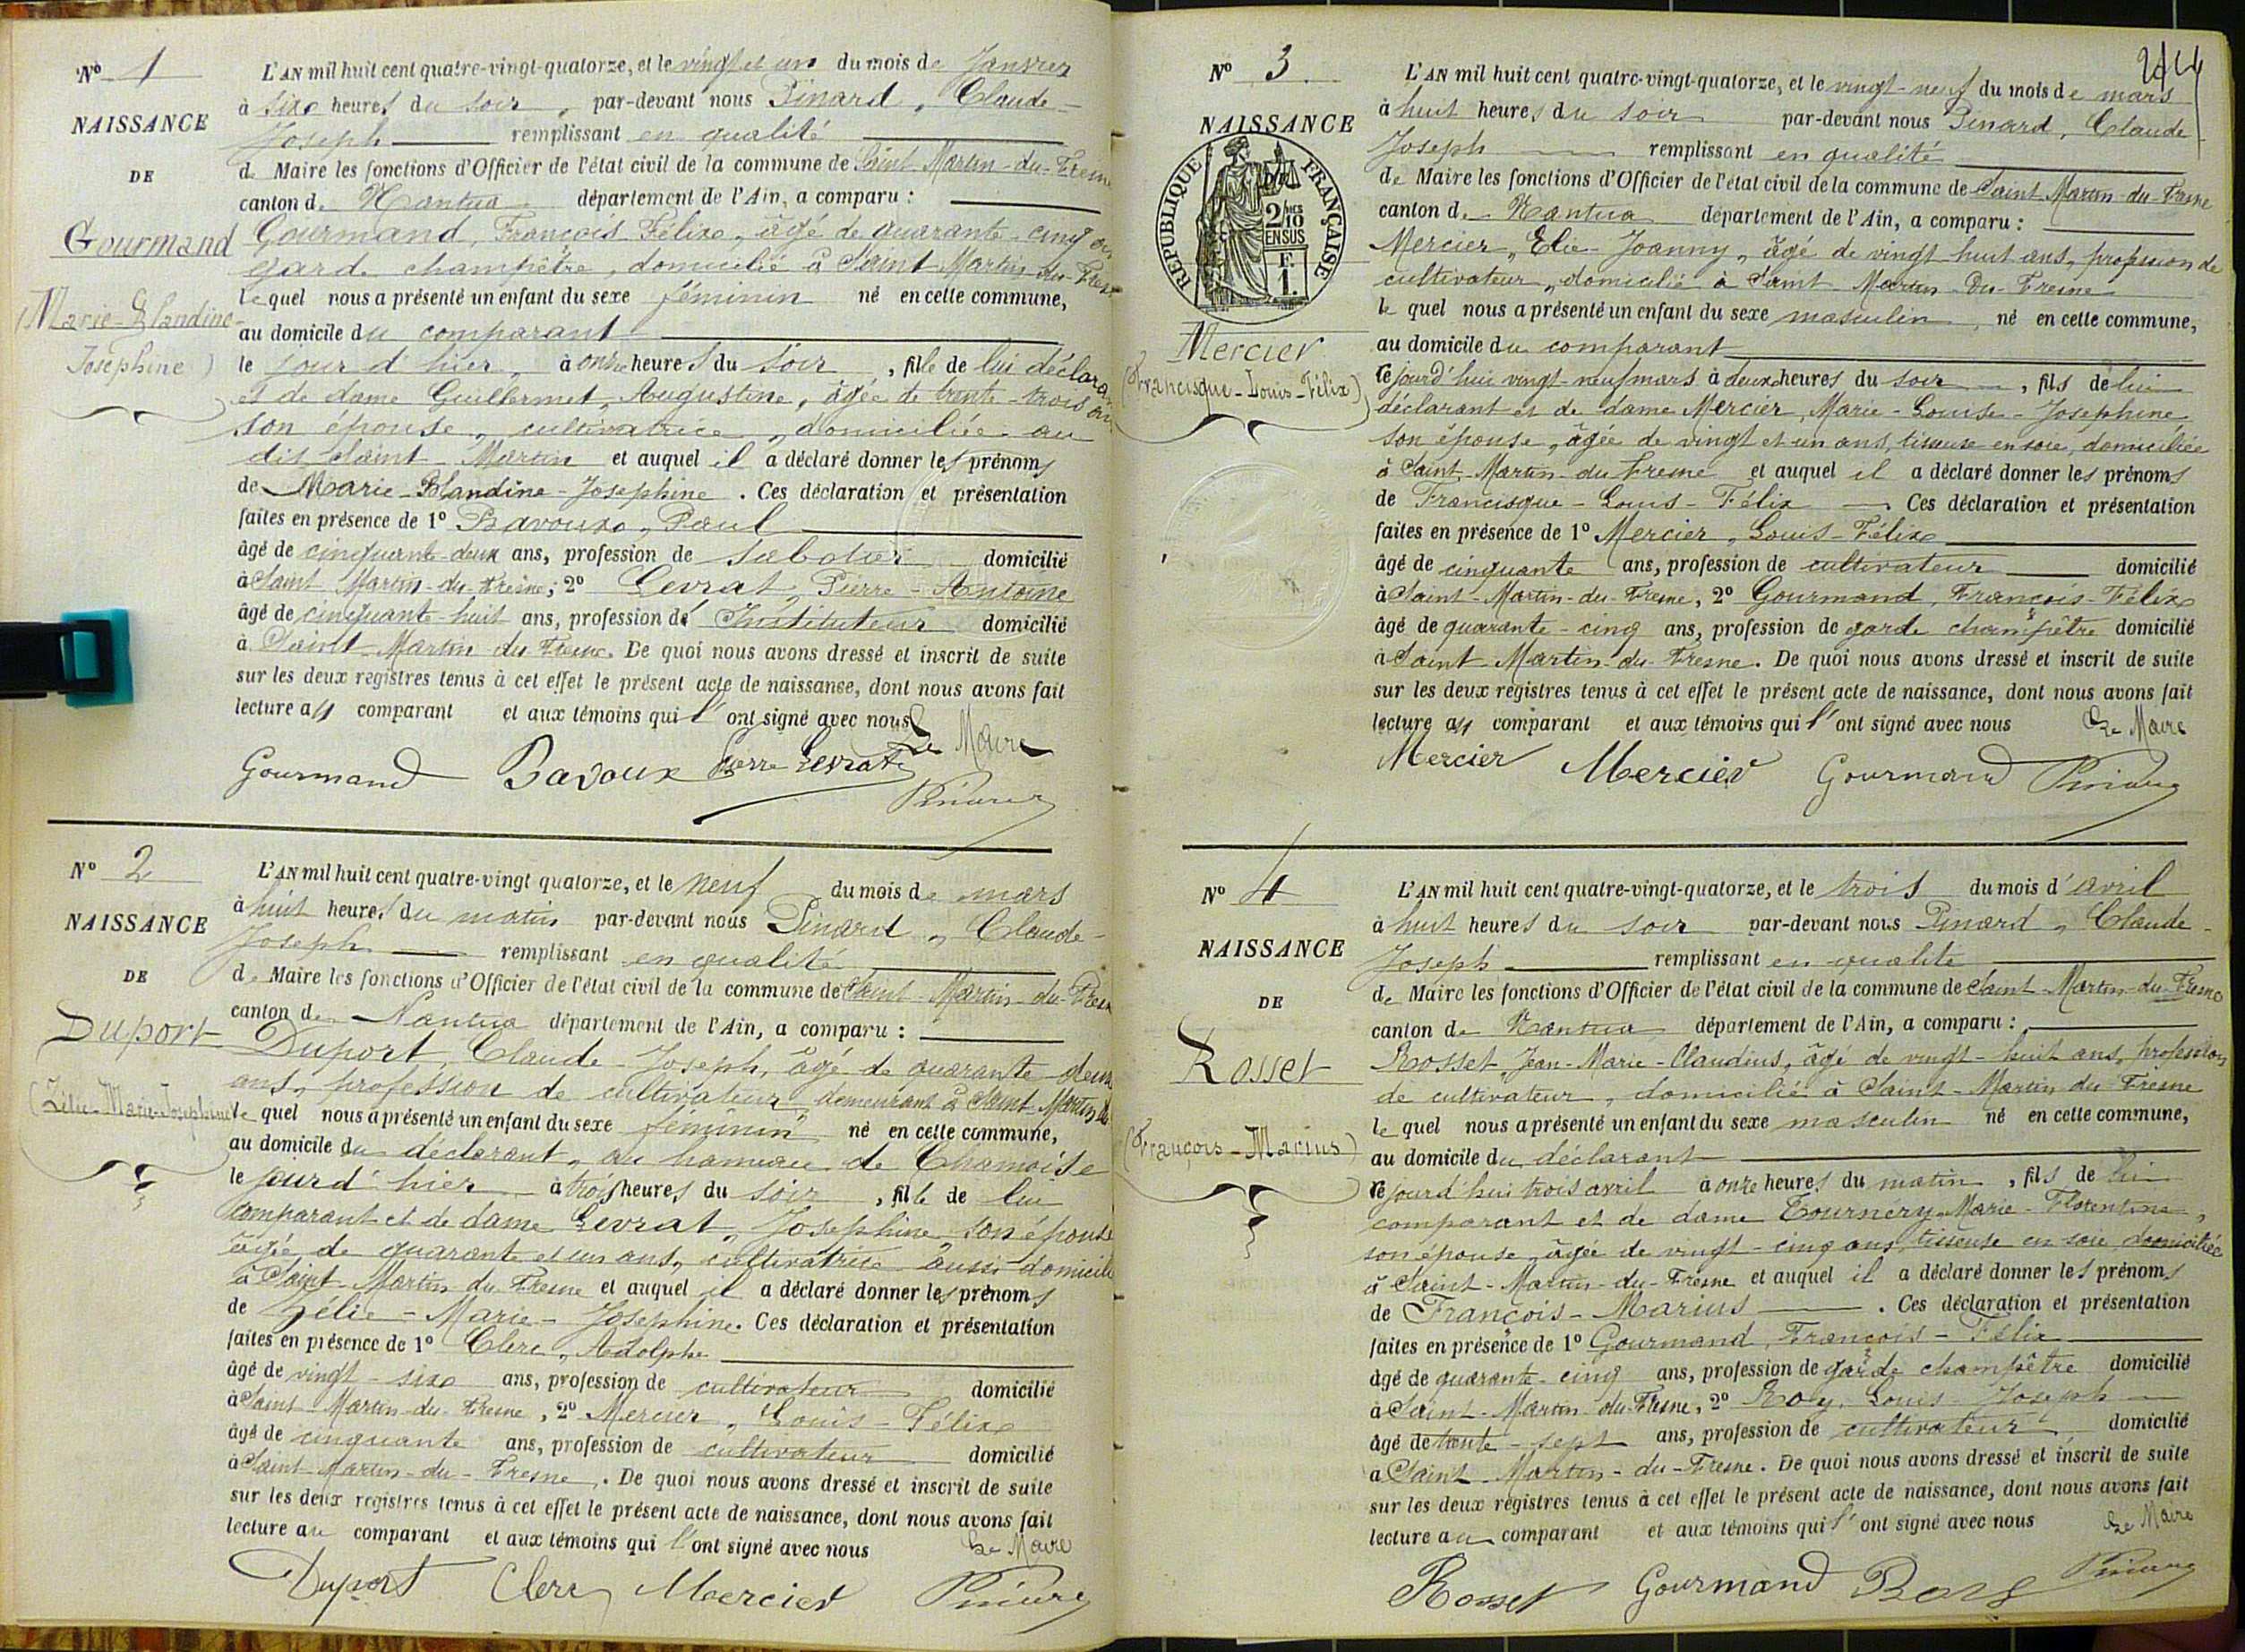 Nº 1
NAISSANCE
DE
Gourmand
(Marie-Blandine-
Joséphine)
L'AN mil huit cent quatre-vingt-quatorze, et le vingt et un du mois de Janvier
à six heures du soir, par-devant nous Pinard, Claude-
Joseph remplissant en qualité
de Maire les fonctions d'Officier de l'état civil de la commune de Saint-Martin-du-Fresne
canton de Nantua département de l'Ain, a comparu :
Gourmand, François Félix, âgé de quarante-cinq ans
garde champêtre, domicilié à Saint-Martin-du-Fresne
lequel nous a présenté un enfant du sexe féminin né en cette commune,
au domicile du comparant
le jour d'hier, à onze heures du soir, fille de lui déclarant
et de dame Guillermet, Augustine, âgée de trente-trois ans
son épouse, cultivatrice, domiciliée au
dit Saint Martin et auquel il a déclaré donner les prénoms
de Marie-Blandine-Joséphine. Ces déclaration et présentation
faites en présence de 1º Bavoux, Paul
âgé de cinquante-deux ans, profession de sabotier domicilié
à Saint Martin-du-Fresne; 2º Levrat, Pierre-Antoine
âgé de cinquante-huit ans, profession de Instituteur domicilié
à Saint-Martin du Fresne. De quoi nous avons dressé et inscrit de suite
sur les deux registres tenus à cet effet le présent acte de naissance, dont nous avons fait
lecture au comparant et aux témoins qui l'ont signé avec nous
Le Maire
Gourmand Bavoux Pierre Levrat
Pinard
Nº 2
NAISSANCE
DE
Duport
(Zélie-Marie-Joséphine)
L'AN mil huit cent quatre-vingt quatorze, et le neuf du mois de mars
à huit heures du matin par-devant nous Pinard, Claude-
Joseph remplissant en qualité
de Maire les fonctions d'Officier de l'état civil de la commune de Saint-Martin-du-Fresne
canton de Nantua département de l'Ain, a comparu :
Duport, Claude-Joseph, âgé de quarante-deux
ans, profession de cultivateur, demeurant à Saint-Martin du
le quel nous a présenté un enfant du sexe féminin né en cette commune,
au domicile du déclarant, au hameau de Chamoise
le jour d'hier à trois heures du soir, fille de lui
comparant et de dame Levrat, Joséphine, son épouse
âgée de quarante et un ans, cultivatrice aussi domiciliée
à Saint-Martin du Fresne et auquel il a déclaré donner les prénoms
de Zélie-Marie-Joséphine. Ces déclaration et présentation
faites en présence de 1º Clerc, Adolphe
âgé de vingt-six ans, profession de cultivateur domicilié
à Saint-Martin-du-Fresne, 2º Mercier, Louis-Félix
âgé de cinquante ans, profession de cultivateur domicilié
à Saint-Martin-du-Fresne. De quoi nous avons dressé et inscrit de suite
sur les deux registres tenus à cet effet le présent acte de naissance, dont nous avons fait
lecture au comparant et aux témoins qui l'ont signé avec nous
Le Maire
Duport Clerc Mercier Pinard
Nº 3
NAISSANCE
RÉPUBLIQUE FRANÇAISE
2/10
EN SUS
F.
1.
Mercier
(Francisque-Louis-Félix)
L'AN mil huit cent quatre-vingt-quatorze, et le vingt-neuf du mois de mars
à huit heures du soir par-devant nous Pinard, Claude
Joseph remplissant en qualité
de Maire les fonctions d'Officier de l'état civil de la commune de Saint-Martin-du-Fresne
canton de Nantua département de l'Ain, a comparu :
Mercier, Elie-Joanny, âgé de vingt huit ans, profession de
cultivateur, domicilié à Saint Martin-Du-Fresne
le quel nous a présenté un enfant du sexe masculin, né en cette commune,
au domicile du comparant
ce jourd'hui vingt-neuf mars à deux heures du soir, fils de lui
déclarant et de dame Mercier, Marie-Louise-Joséphine,
son épouse, âgée de vingt et un ans, tisseuse en soie, domiciliée
à Saint-Martin-du Fresne et auquel il a déclaré donner les prénoms
de Francisque-Louis-Félix. Ces déclaration et présentation
faites en présence de 1º Mercier, Louis-Félix
âgé de cinquante ans, profession de cultivateur domicilié
à Saint-Martin-du-Fresne, 2º Gourmand, François-Félix
âgé de quarante-cinq ans, profession de garde champêtre domicilié
à Saint Martin-du-Fresne. De quoi nous avons dressé et inscrit de suite
sur les deux registres tenus à cet effet le présent acte de naissance, dont nous avons fait
lecture au comparant et aux témoins qui l'ont signé avec nous Le Maire
Mercier Mercier Gourmand Pinard
Nº 4
NAISSANCE
DE
Rosset
(François-Marius)
L'AN mil huit cent quatre-vingt-quatorze, et le trois du mois d'avril
à huit heures du soir par-devant nous Pinard, Claude-
Joseph remplissant en qualité
de Maire les fonctions d'Officier de l'état civil de la commune de Saint Martin-du-Fresne
canton de Nantua département de l'Ain, a comparu :
Rosset, Jean-Marie-Claudius, âgé de vingt-huit ans, profession
de cultivateur, domicilié à Saint-Martin du Fresne
le quel nous a présenté un enfant du sexe masculin né en cette commune,
au domicile du déclarant
ce jourd'hui trois avril à onze heures du matin, fils de lui
comparant et de dame Tournéry Marie-Florentine,
son épouse, âgée de vingt-cinq ans, tisseuse en soie, domiciliée
à Saint-Martin-du-Fresne et auquel il a déclaré donner les prénoms
de François-Marius. Ces déclaration et présentation
faites en présence de 1º Gourmand, François-Félix
âgé de quarante-cinq ans, profession de garde champêtre domicilié
à Saint-Martin-du-Fresne, 2º Roy, Louis-Joseph
âgé de trente-sept ans, profession de cultivateur domicilié
à Saint Martin-du-Fresne. De quoi nous avons dressé et inscrit de suite
sur les deux registres tenus à cet effet le présent acte de naissance, dont nous avons fait
lecture au comparant et aux témoins qui l'ont signé avec nous Le Maire
Rosset Gourmand Roy Pinard